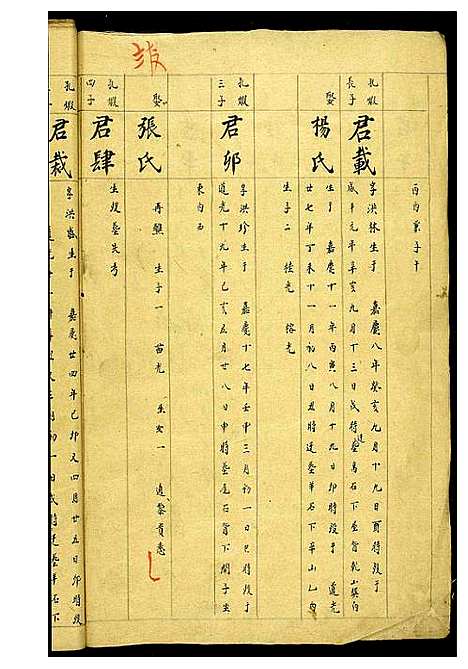 酉向兼子午
孔嫰
長子
君載
字洪林生于 嘉慶八年癸亥九月十九日酉時殁于
咸丰元年辛亥九月十三日戌時塟馬石下屋背乾山巽向
娶
楊氏
生于 嘉慶十一年丙寅八月十九日卯時殁于 道光
廿七年丁未十一月初八日丑時逆塟羊石下辛山乙向
生子二 桂光 榕光
孔嫰
三子
君卯
字洪珍生于 嘉慶十七年壬申三月初一日巳時殁于
道光十九年己亥五月廿八日申時塟尾石背下
東向西
娶
張氏
再醮 生子一 苗光 生女一 適黎貢惠
孔嫰
四子
君肆
生殁塟失考
君裁
字洪裕生于 嘉慶廿四年己卯又四月廿五日卯時殁